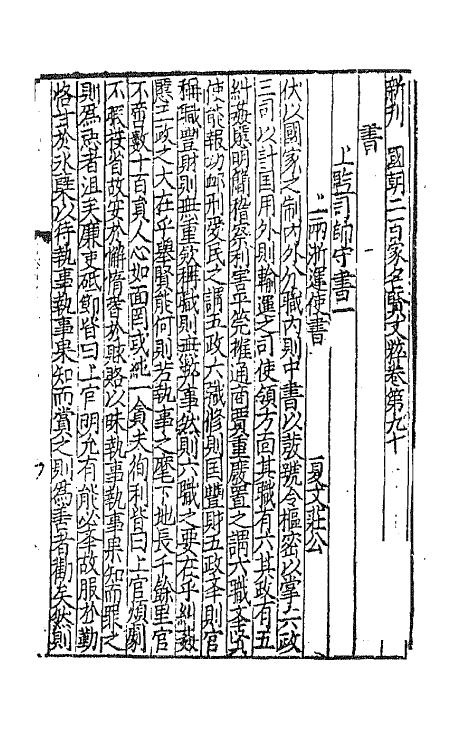 新刊國朝二百家名賢文粹卷第九十
書
上監司帥守書一
上兩浙運使書
夏文莊公
伏以國家之制内外分職内則中書以發號令樞密以掌六政
三司以計国用外則輸運之司使領方面其職有六其政有五
糾姦慝明簡稽察利害平筦榷通商賈重廢置之謂六職奉公
使能報功恤刑愛民之謂五政六職修則国豐財五政奉則官
稱職豐財則無重歛稱職則無弊事然則六職之要在乎糾姦
慝五政之大在乎舉賢能何則若執事之麾下地長千餘里官
不啻數十百員人心如面罔或純一貪夫徇利皆曰上官煩劇
不暇按省故安於懈惰奢於賕賂以昧執事執事果知而罪之
則爲惡者沮矣廉吏砥節皆曰上官明允有能必奉故服於勤
恪甘於氷蘖以待執事執事果知而賞之則爲善者勸矣然則